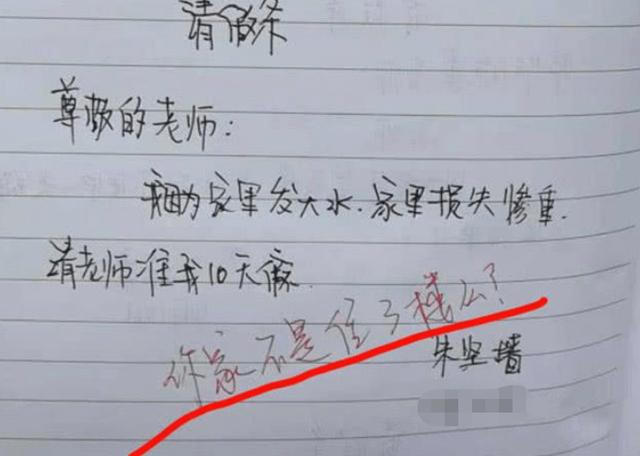 请假条
尊敬的老师：
我因为家里发大水.家里损失惨重.
请老师准我10天假.
你家不是住3楼么?
朱坚墙